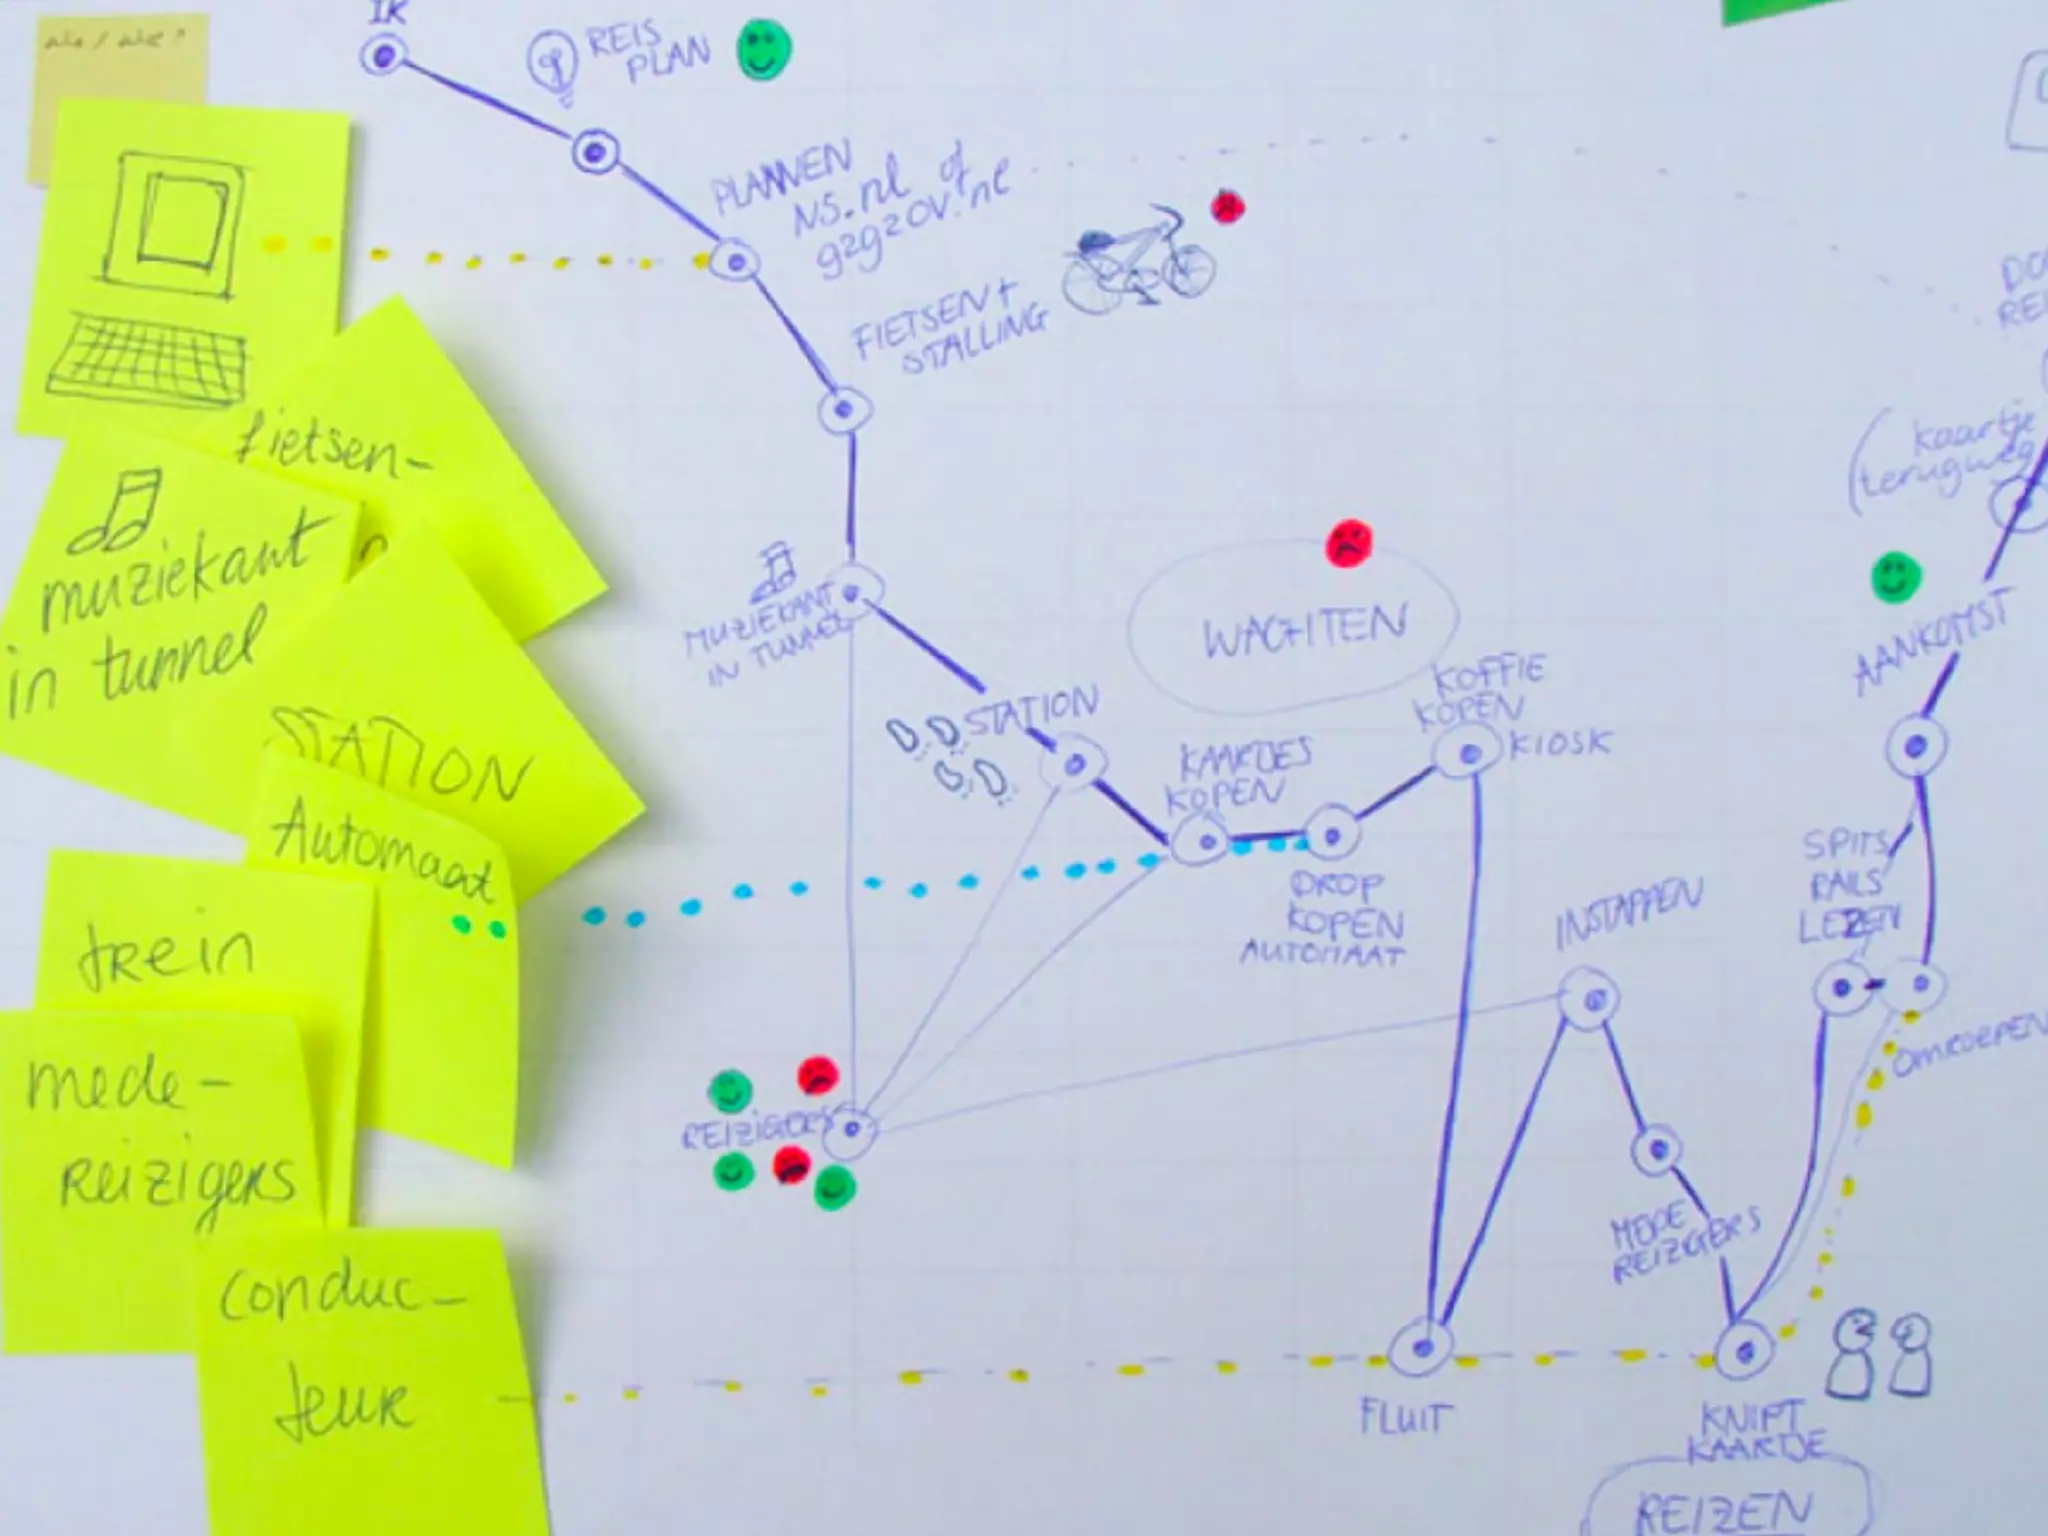 IK
REIS
PLAN
PLANNEN
NS.nl of
9292ov.nl
FIETSEN +
STALLING
fietsen-
muziekant
in tunnel
MUZIEKANT
IN TUNNEL
STATION
STATION
WACHTEN
KAARTJES
KOPEN
KOFFIE
KOPEN
KIOSK
DROP
KOPEN
AUTOMAAT
Automaat
trein
mede-
reizigers
conduc-
teur
REIZIGERS
INSTAPPEN
MEDE
REIZIGERS
FLUIT
KNIPT
KAARTJE
REIZEN
SPITS
RAILS
LEZEN
OMROEPEN
AANKOMST
(kaartje
terugweg